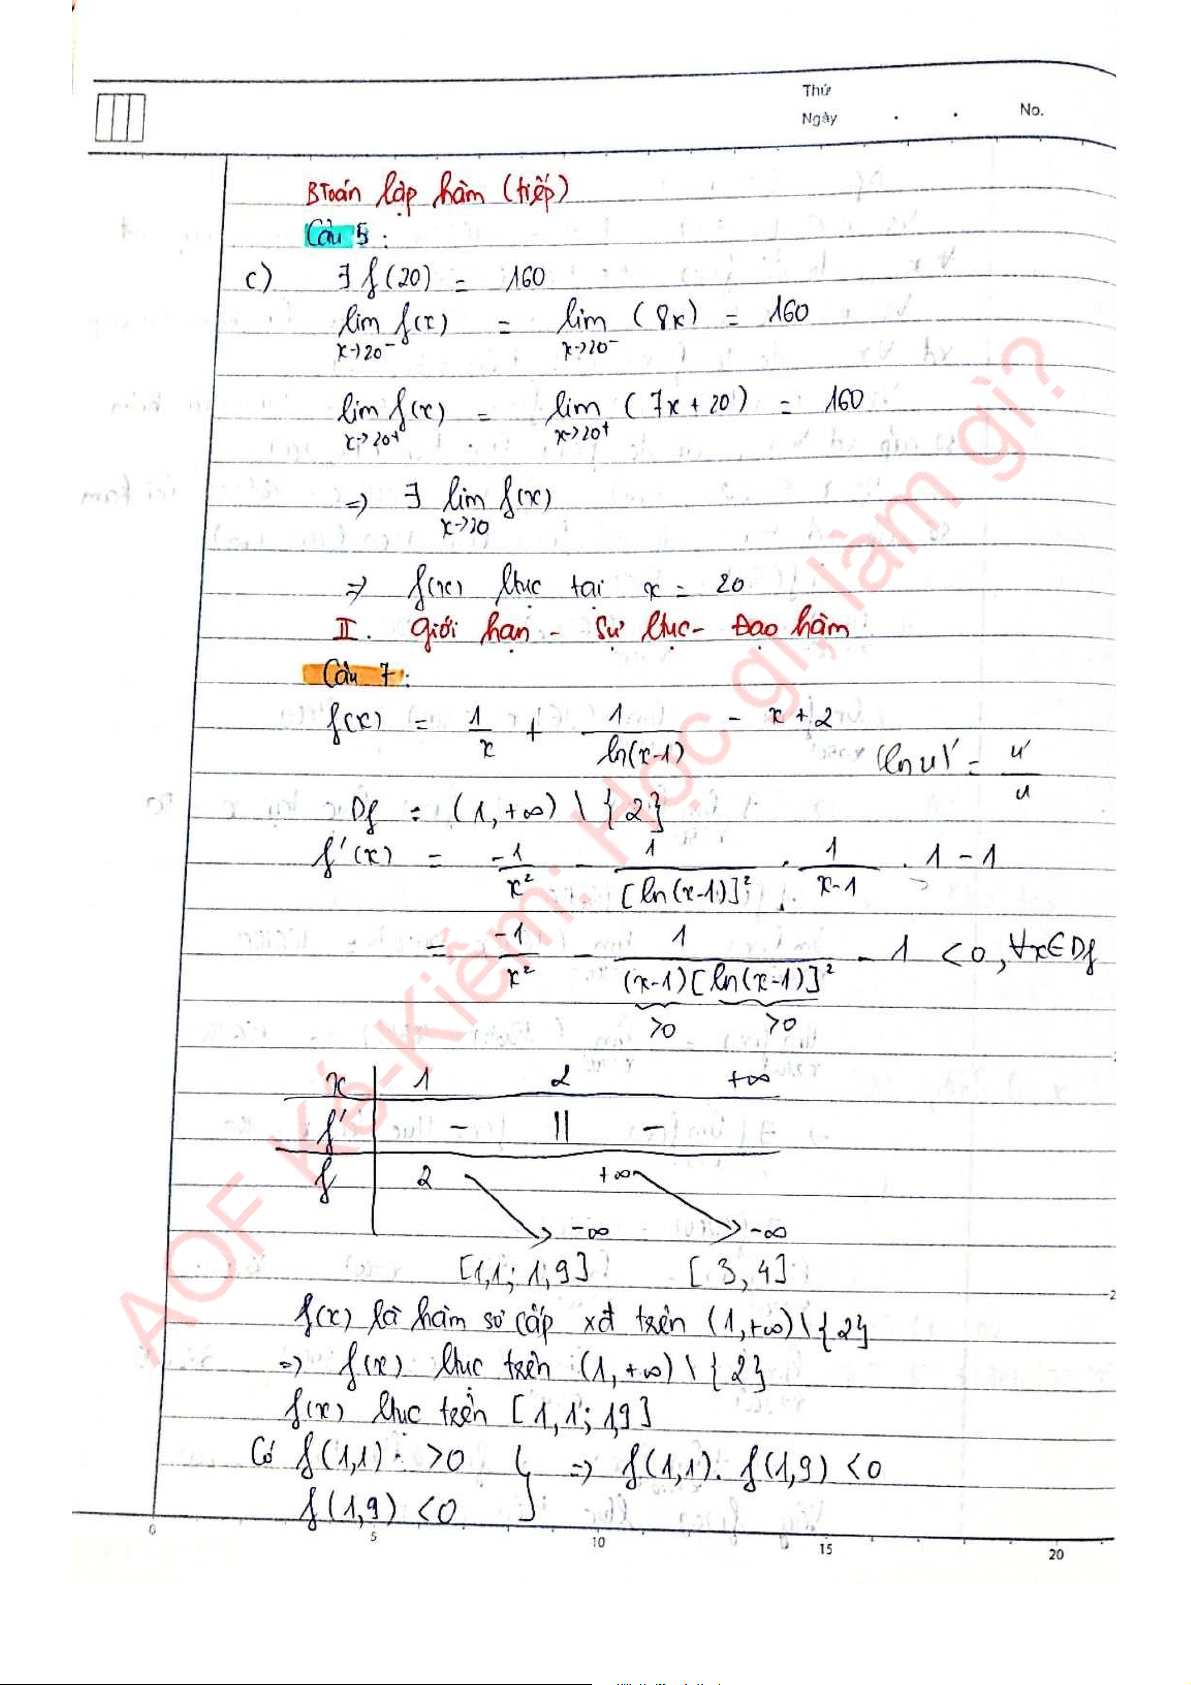 Thứ
Ngày . . No.
BToán lập hàm (tiếp)
Câu 5 :
c) ∃ f(20) = 160
lim f(x) = lim (8x) = 160
x→20⁻ x→20⁻
lim f(x) = lim (7x + 20) = 160
x→20⁺ x→20⁺
=> ∃ lim f(x)
x→20
=> f(x) ltục tại x = 20
II. Giới hạn - Sự ltục - Đạo hàm
Câu 7 :
f(x) = 1/x + 1/ln(x-1) - x + 2
(ln u)' = u'/u
Df = (1, +∞) \ {2}
f'(x) = -1/x² - 1/[ln(x-1)]² . 1/(x-1) . 1 - 1
= -1/x² - 1/((x-1)[ln(x-1)]²) - 1 < 0, ∀x∈Df
>0 >0
x 1 2 +∞
f' - || -
f 2 -∞ +∞ -∞
[1,1; 1,9] [3,4]
f(x) là hàm sơ cấp xđ trên (1,+∞)\{2}
=> f(x) ltục trên (1,+∞)\{2}
f(x) ltục trên [1,1; 1,9]
Có f(1,1) > 0 } => f(1,1). f(1,9) < 0
f(1,9) < 0
0 5 10 15 20
AOF Kế-Kiểm: Học gì, làm gì?